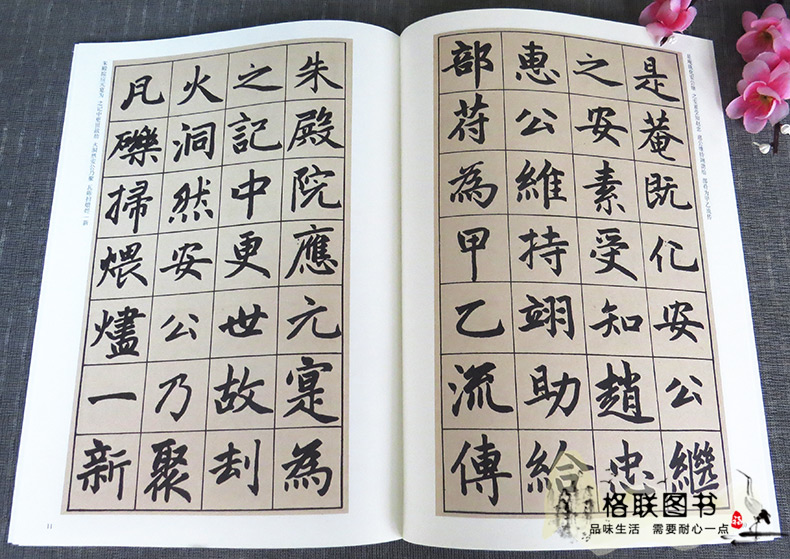 是菴既化安公繼
之安素受知趙忠
惠公維持翊助給
部苻為甲乙流傳
朱殿院應元寔為
之記中更世故刦
火洞然安公乃聚
瓦礫掃煨燼一新
11
格联图书
品味生活 需要耐心一点